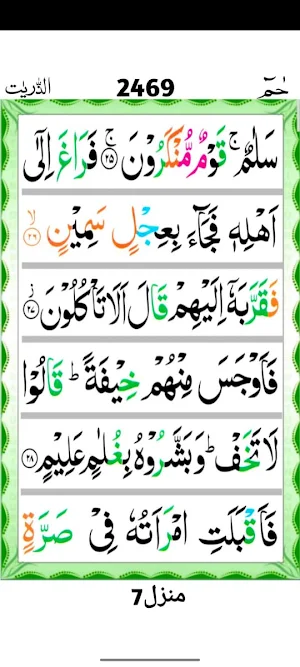 الذّٰریٰت 2469 حٰمٓ
سَلٰمٌ ۚ قَوْمٌ مُّنْكَرُوْنَ ۚ ۝۲۵ فَرَاغَ اِلٰۤی
اَهْلِهٖ فَجَآءَ بِعِجْلٍ سَمِیْنٍ ۙ ۝۲۶
فَقَرَّبَهٗۤ اِلَیْهِمْ قَالَ اَلَا تَاْكُلُوْنَ ؗ ۝۲۷
فَاَوْجَسَ مِنْهُمْ خِیْفَةً ؕ قَالُوْا
لَا تَخَفْ ؕ وَ بَشَّرُوْهُ بِغُلٰمٍ عَلِیْمٍ ۝۲۸
فَاَقْبَلَتِ امْرَاَتُهٗ فِیْ صَرَّةٍ
منزل 7